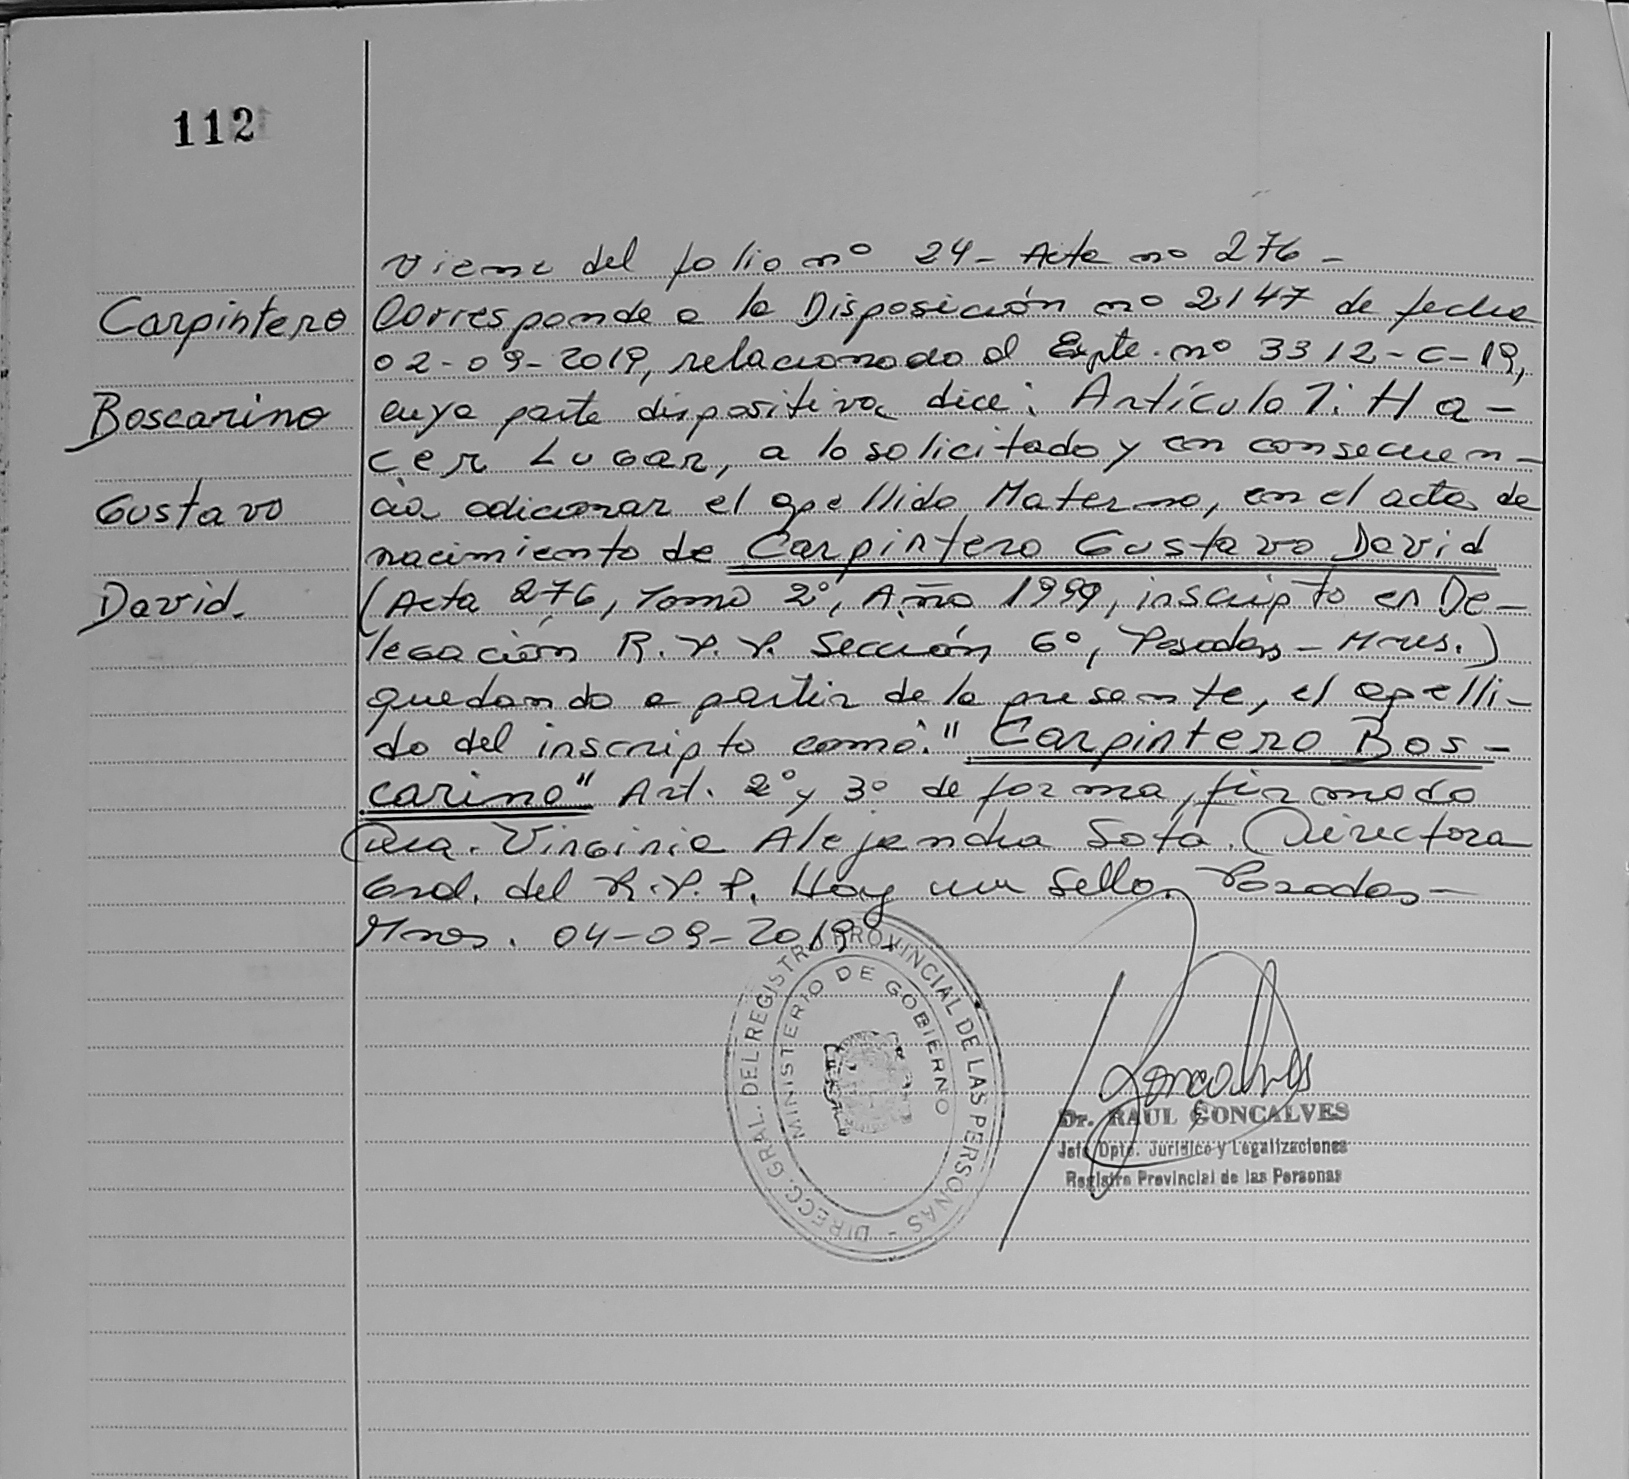 112
Viene del folio nº 24- Acta nº 276-
Carpintero
Boscarino
Gustavo
David.
Corresponde a la Disposición nº 2147 de fecha
02-09-2019, relacionado al Expte. nº 3312-C-19,
cuya parte dispositiva dice: Artículo 1: Ha-
cer Lugar, a lo solicitado y en consecuen-
cia adicionar el apellido Materno, en el acta de
nacimiento de Carpintero Gustavo David
(Acta 276, Tomo 2º, Año 1999, inscripto en De-
legación R.P.P. Sección 6º, Posadas-Mnes.)
quedando a partir de la presente, el apelli-
do del inscripto como: "Carpintero Bos-
carino" Art. 2º y 3º de forma, firmado
Dra. Virginia Alejandra Sota. Directora
Gral. del R.P.P. Hay un sello. Posadas-
Mnes. 04-09-2019.
DIRECC. GRAL. DEL REGISTRO PROVINCIAL DE LAS PERSONAS -
MINISTERIO DE GOBIERNO
Goncalves
Dr. RAUL GONCALVES
Jefe Dpto. Jurídico y Legalizaciones
Registro Provincial de las Personas